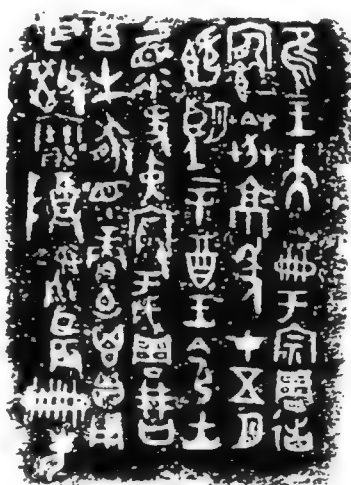 隹王大龠于宗周
京年才五月
既望辛酉王令士
上眔史寅于成周百
生豚眔賞卣鬯貝用
乍父癸寶尊彝臣辰冊